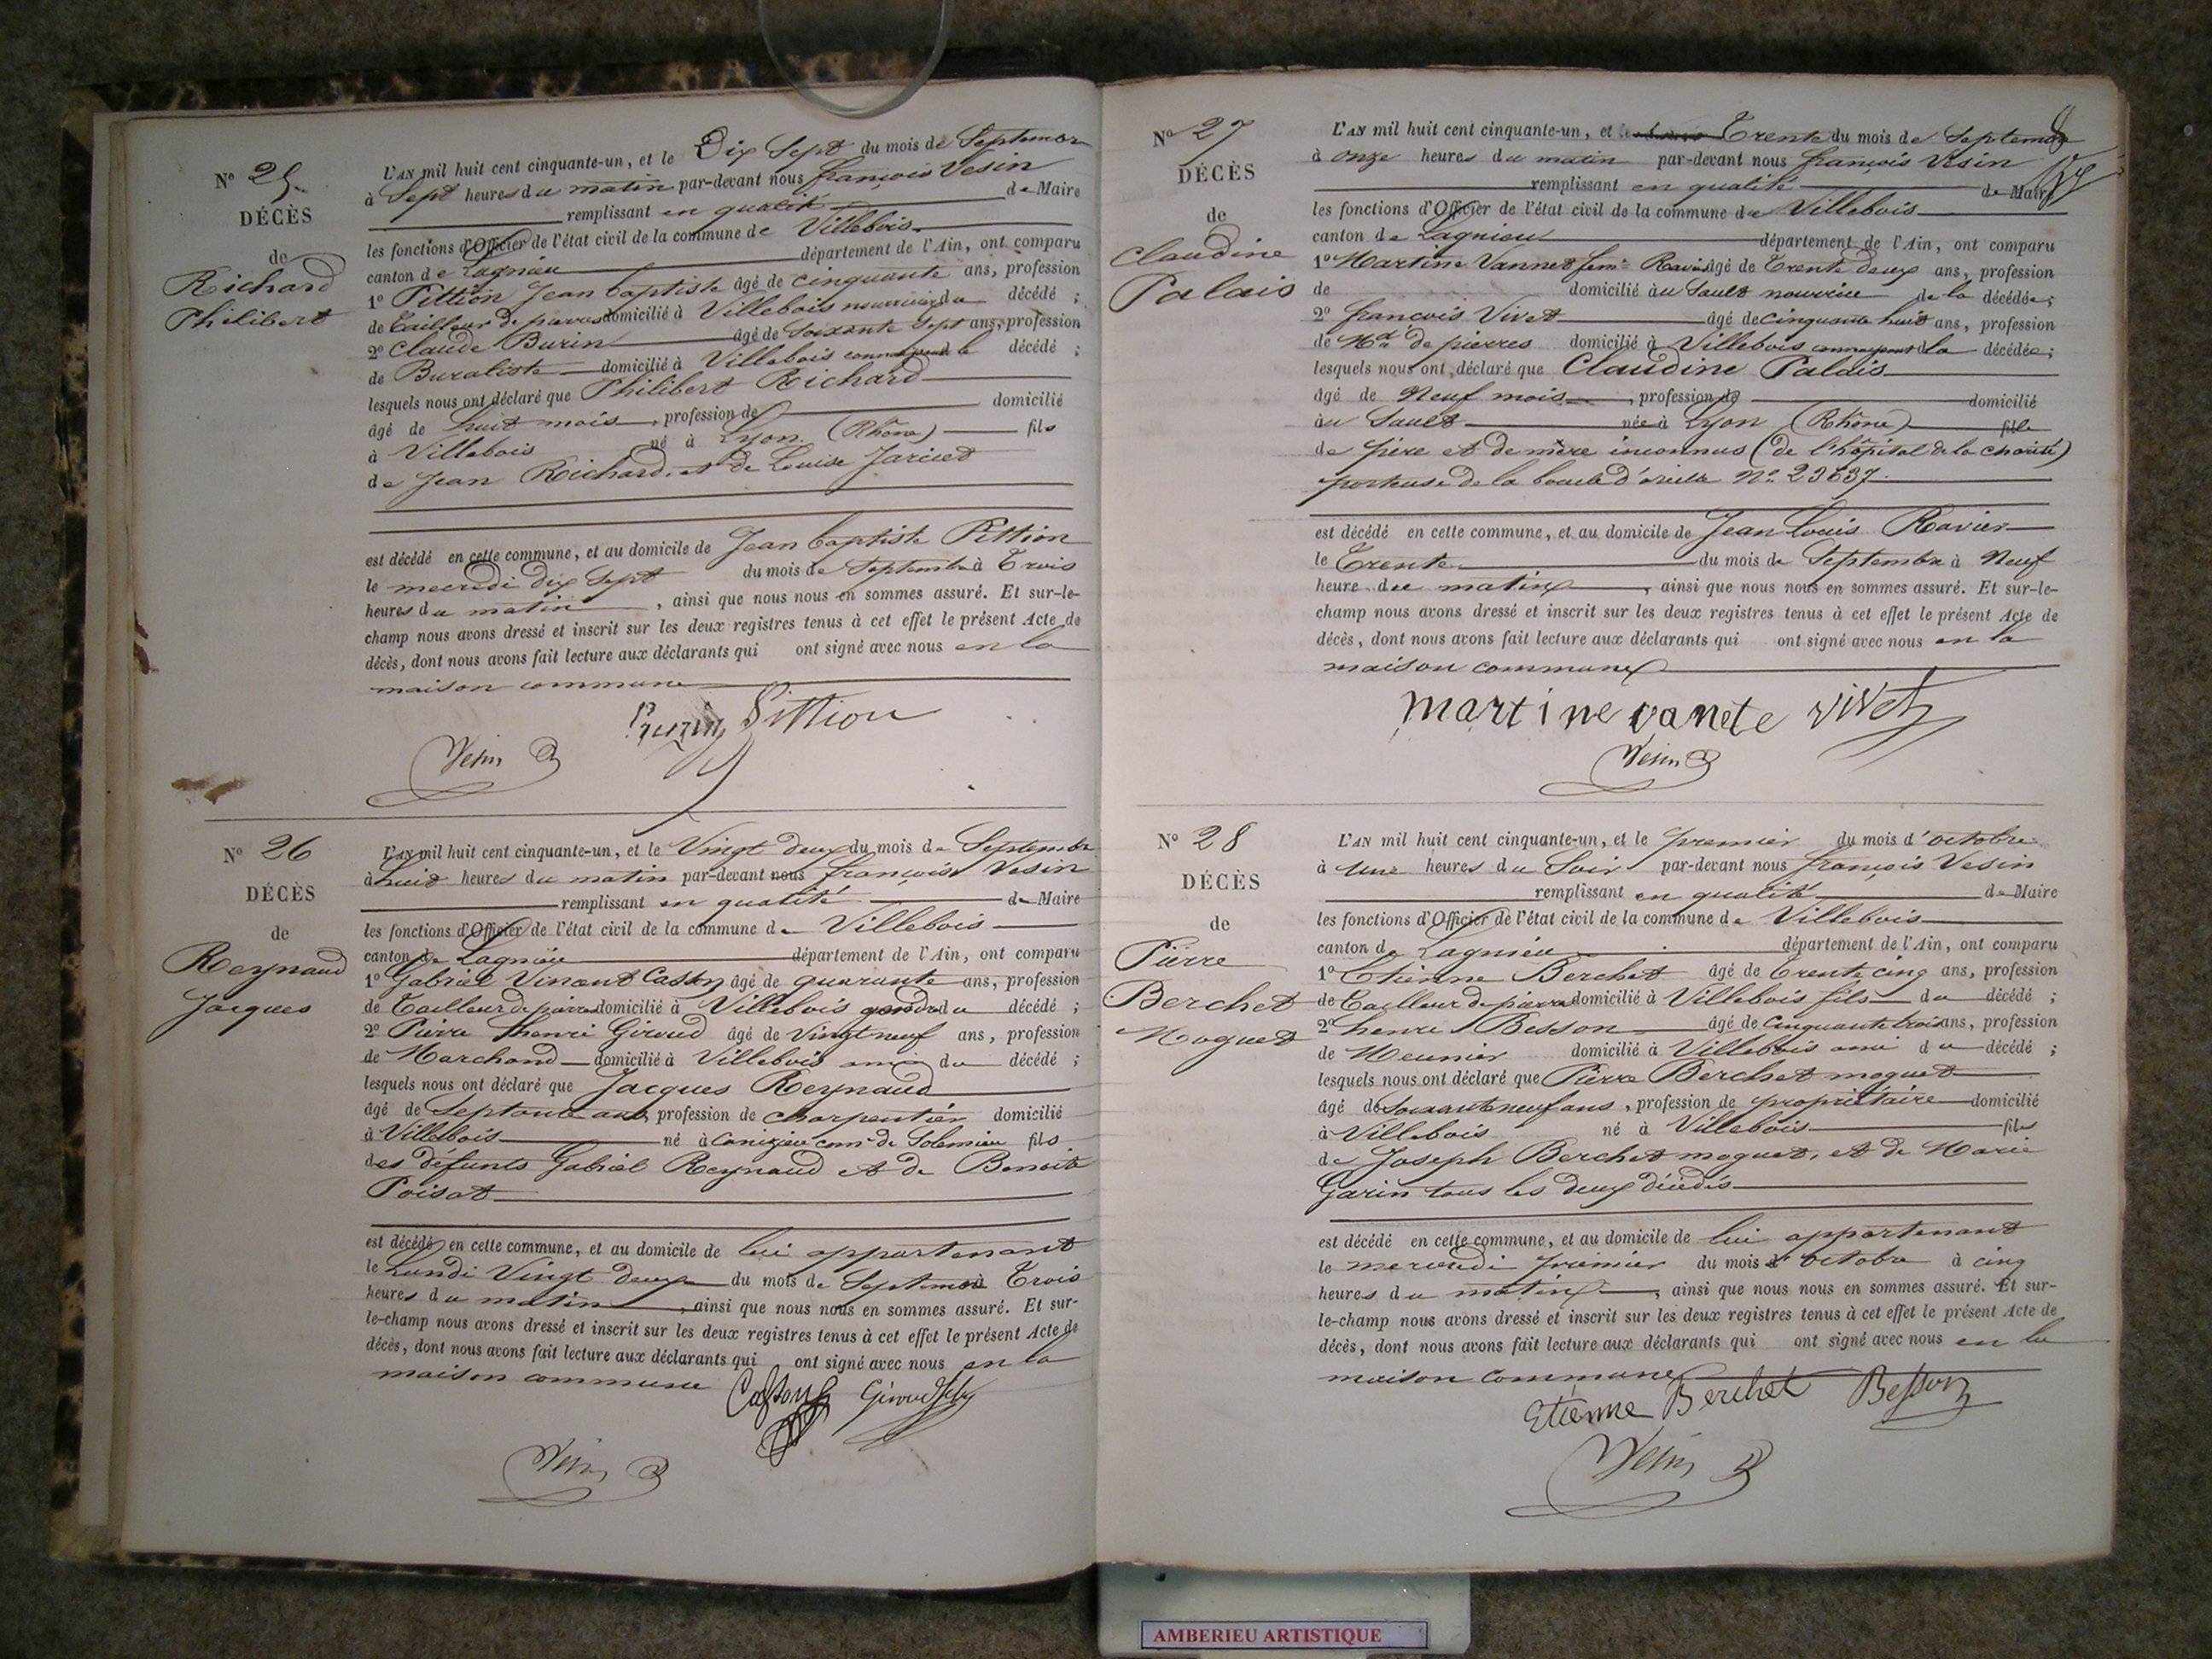 N° 25
DÉCÈS
de
Richard
Philibert
L'AN mil huit cent cinquante-un, et le Dix Sept du mois de Septembre
à Sept heures du matin par-devant nous françois Vesin
remplissant en qualité de Maire
les fonctions d'Officier de l'état civil de la commune de Villebois
canton de Lagnieu département de l'Ain, ont comparu
1° Pittion Jean baptiste âgé de cinquante ans, profession
de Tailleur de pierres domicilié à Villebois nourricier du décédé ;
2° Claude Burin âgé de Soixante Sept ans, profession
de Buraliste domicilié à Villebois le décédé ;
lesquels nous ont déclaré que Philibert Richard
âgé de huit mois, profession de domicilié
à Villebois né à Lyon (Rhône) fils
de Jean Richard, et de Louise Jaricot
est décédé en cette commune, et au domicile de Jean baptiste Pittion
le mecredi dix Sept du mois de Septembre à Trois
heures du matin, ainsi que nous nous en sommes assuré. Et sur-le-
champ nous avons dressé et inscrit sur les deux registres tenus à cet effet le présent Acte de
décès, dont nous avons fait lecture aux déclarants qui ont signé avec nous en la
maison commune
Pittion
Vesin
N° 26
DÉCÈS
de
Reynaud
Jacques
L'AN mil huit cent cinquante-un, et le Vingt deux du mois de Septembre
à huit heures du matin par-devant nous françois Vesin
remplissant en qualité de Maire
les fonctions d'Officier de l'état civil de la commune de Villebois
canton de Lagnieu département de l'Ain, ont comparu
1° Gabriel Vincent Caston âgé de quarante ans, profession
de Tailleur de pierres domicilié à Villebois gendre du décédé ;
2° Pierre henri Giroud âgé de Vingt neuf ans, profession
de Marchand domicilié à Villebois ami du décédé ;
lesquels nous ont déclaré que Jacques Reynaud
âgé de Septante ans, profession de charpentier domicilié
à Villebois né à com<sup>e</sup> de Solemieu fils
des défunts Gabriel Reynaud et de Benoite
Poisat
est décédé en cette commune, et au domicile de lui appartenant
le Lundi Vingt deux du mois de Septembre à Trois
heures du matin, ainsi que nous nous en sommes assuré. Et sur-
le-champ nous avons dressé et inscrit sur les deux registres tenus à cet effet le présent Acte de
décès, dont nous avons fait lecture aux déclarants qui ont signé avec nous en la
maison commune
Caston Giroud
Vesin
N° 27
DÉCÈS
de
Claudine
Palais
L'AN mil huit cent cinquante-un, et le Trente du mois de Septembre
à onze heures du matin par-devant nous françois Vesin
remplissant en qualité de Maire
les fonctions d'Officier de l'état civil de la commune de Villebois
canton de Lagnieu département de l'Ain, ont comparu
1° Martine Vannet fem<sup>e</sup> Ravier âgé de Trente deux ans, profession
de domicilié au Sault nourrice de la décédée ;
2° françois Vivet âgé de cinquante huit ans, profession
de M<sup>d</sup> de pierres domicilié à Villebois la décédée ;
lesquels nous ont déclaré que Claudine Palais
âgé de Neuf mois, profession de domicilié
au Sault née à Lyon (Rhône) fille
de père et de mère inconnus (de l'hôpital de la charité)
porteuse de la boucle d'oreille N°
est décédé en cette commune, et au domicile de Jean Louis Ravier
le Trente du mois de Septembre à Neuf
heure du matin, ainsi que nous nous en sommes assuré. Et sur-le-
champ nous avons dressé et inscrit sur les deux registres tenus à cet effet le présent Acte de
décès, dont nous avons fait lecture aux déclarants qui ont signé avec nous en la
maison commune
martine vanete vivet
Vesin
N° 28
DÉCÈS
de
Pierre
Berchet
Moguet
L'AN mil huit cent cinquante-un, et le premier du mois d'octobre
à une heures du Soir par-devant nous françois Vesin
remplissant en qualité de Maire
les fonctions d'Officier de l'état civil de la commune de Villebois
canton de Lagnieu département de l'Ain, ont comparu
1° Etienne Berchet âgé de Trente cinq ans, profession
de Tailleur de pierres domicilié à Villebois fils du décédé ;
2° henri Besson âgé de cinquante trois ans, profession
de Meunier domicilié à Villebois ami du décédé ;
lesquels nous ont déclaré que Pierre Berchet moguet
âgé de Soixante neuf ans, profession de propriétaire domicilié
à Villebois né à Villebois fils
de Joseph Berchet moguet, et de Marie
Garin tous les deux décédés
est décédé en cette commune, et au domicile de lui appartenant
le mercredi premier du mois d'octobre à cinq
heures du matin, ainsi que nous nous en sommes assuré. Et sur-
le-champ nous avons dressé et inscrit sur les deux registres tenus à cet effet le présent Acte de
décès, dont nous avons fait lecture aux déclarants qui ont signé avec nous en la
maison commune
Etienne Berchet Besson
Vesin
AMBERIEU ARTISTIQUE